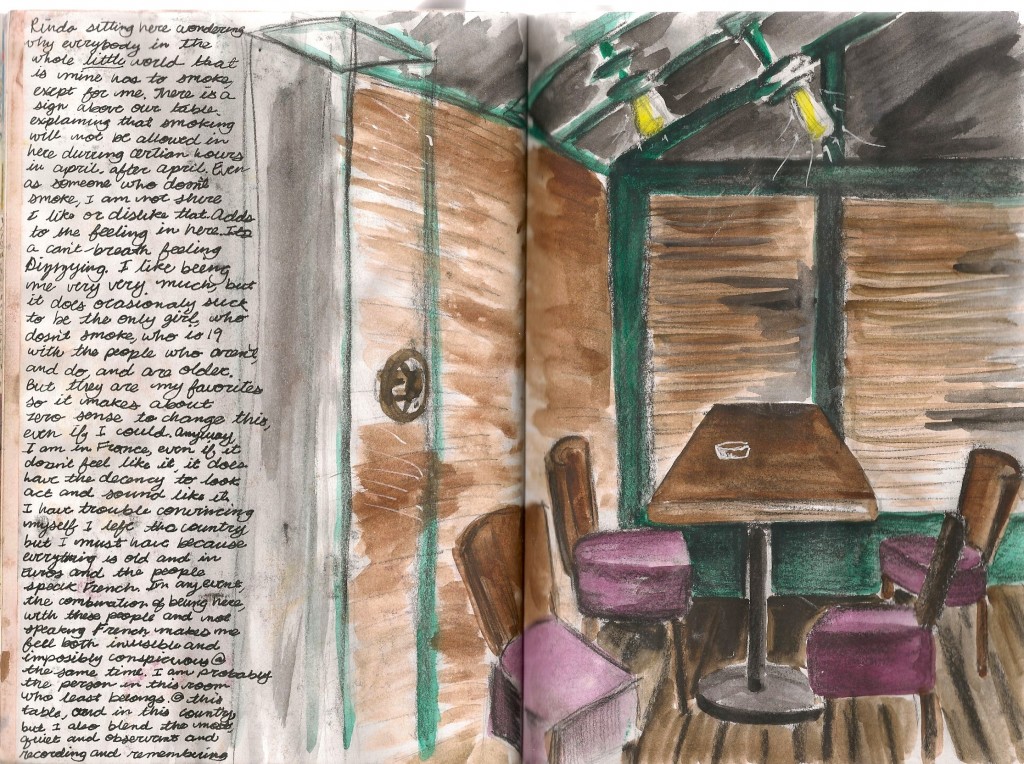 Kinda sitting here wondering
why everybody in the
whole little world that
is mine has to smoke,
exept for me. There is a
sign above our table
explaming that smoking
will not be allowed in
here durring certian hours
in april. after april. Even
as someone who dosnt
smoke, I am not shure
I like or dislike that. Adds
to the feeling in here. Its
a can't breath feeling
Dizzying. I like being
me very very much, but
it does ocasionaly suck
to be the only girl, who
dosnt smoke, who is 19
with the people who aren't,
and do, and are older.
But they are my favorites
so it makes about
zero sense to change this,
even if I could. anyway,
I am in France, even if it
dosn't feel like it, it does
have the decency to look
act and sound like it,
I have trouble convincing
myself I left the country
but I must have because
everything is old and in
Euros and the people
speak French. In any event,
the combination of being here,
with these people and not
speaking French makes me
fell both invisible and
impossibly conspicuous @
the same time. I am probably
the person in this room
who least belongs @ this
table, and in this country
but I also blend the most,
quiet and observant and
recording and remembering